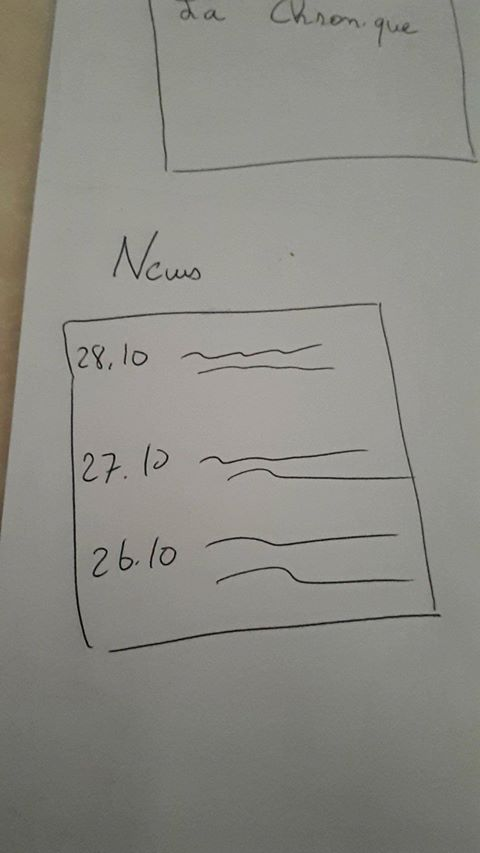 La Chronique
News
28.10
27.10
26.10